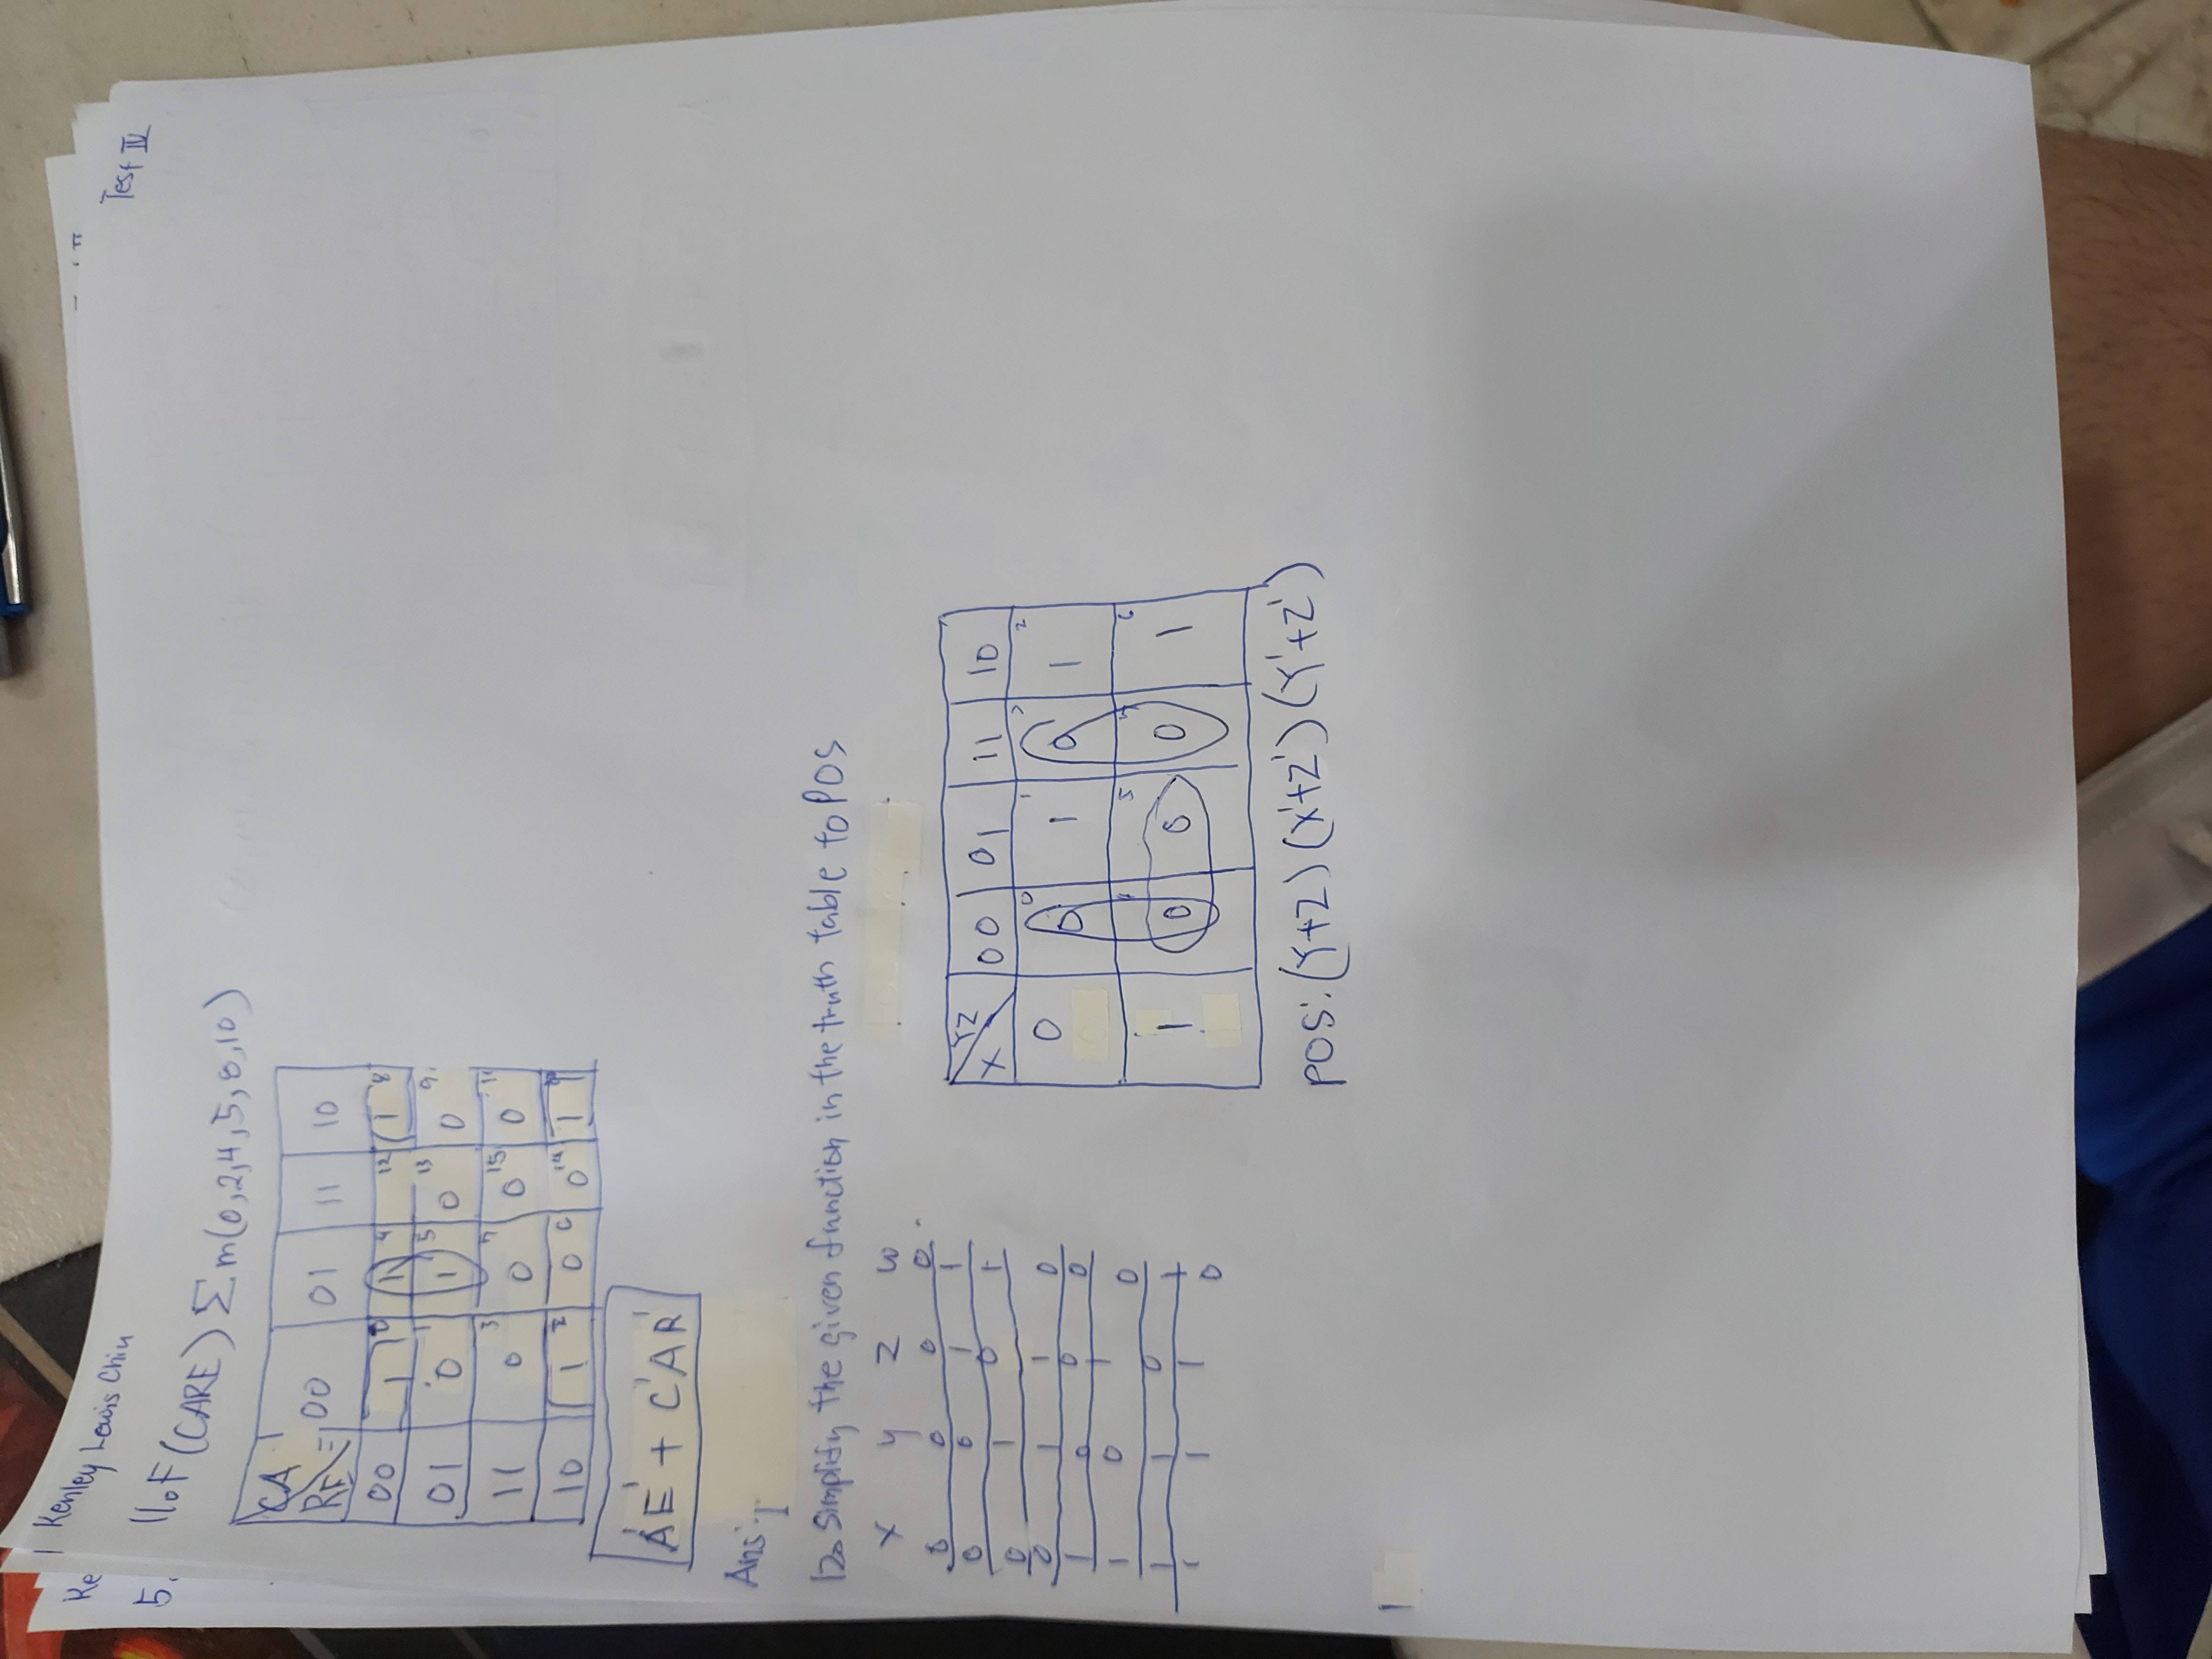 Ke
5.
Kenley Lewis Chiu
Test IV
11. F(CARE) Σm(0,2,4,5,8,10)
CA
RE = 00 01 11 10
00 1 0 1 4 12 1 8
01 0 1 1 5 0 13 0 9
11 0 3 0 7 0 15 0 11
10 1 2 0 6 0 14 1 10
A'E' + C'AR'
Ans:
12. Simplify the given function in the truth table to POS
X Y Z W
0 0 0 0
0 0 1 1
0 1 0 1
0 1 1 0
1 0 0 0
1 0 1 0
1 1 0 1
1 1 1 0
YZ
X 00 01 11 10
0 0 0 1 1 0 3 1 2
1 0 4 0 5 0 7 1 6
POS: (Y+Z) (X'+Z') (Y'+Z')